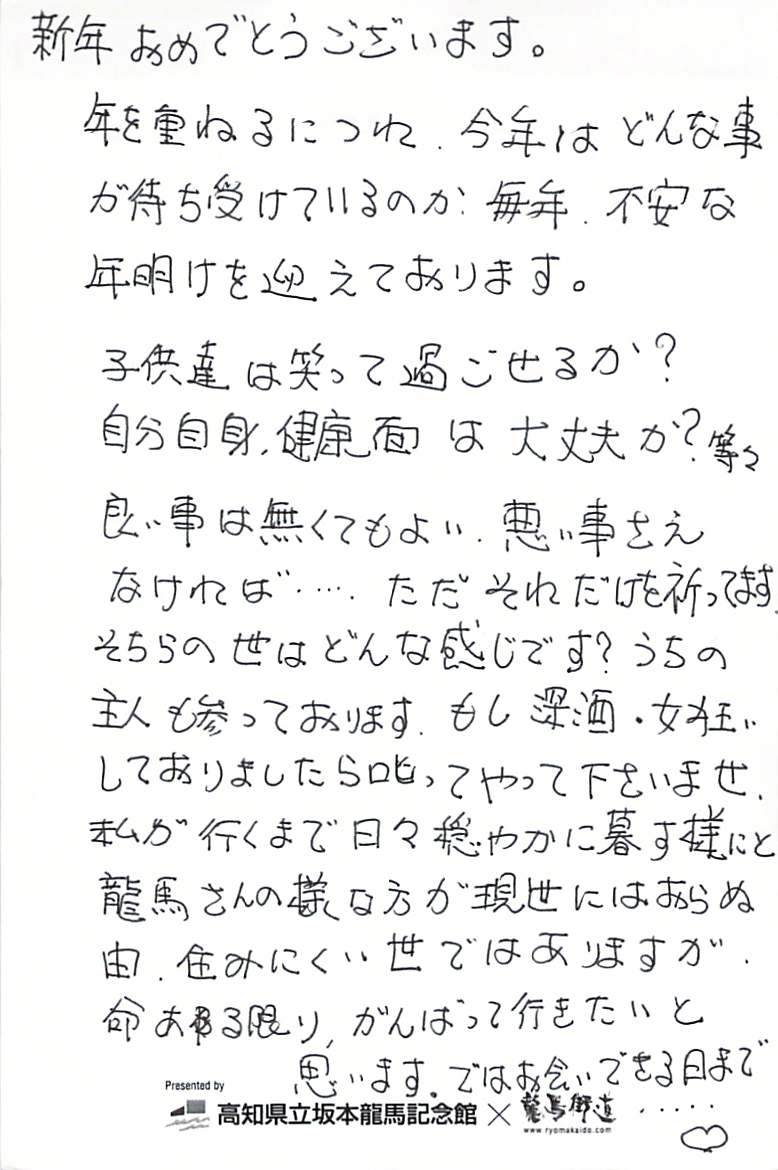 新年おめでとうございます。
年を重ねるにつれ、今年はどんな事
が待ち受けているのか、毎年、不安な
年明けを迎えております。
子供達は笑って過ごせるか?
自分自身、健康面は大丈夫か?等々
良い事は無くてもよい、悪い事さえ
なければ‥‥. ただそれだけを祈ってます。
そちらの世はどんな感じです?うちの
主人も参っております。もし深酒・女狂い
しておりましたら叱ってやって下さいませ。
私が行くまで日々穏やかに暮す様にと
龍馬さんの様な方が現世にはおらぬ
由、住みにくい世ではありますが、
命ある限り、がんばって行きたいと
思います。ではお会いできる日まで
‥‥‥
Presented by
高知県立坂本龍馬記念館×龍馬街道
www.ryomakaido.com